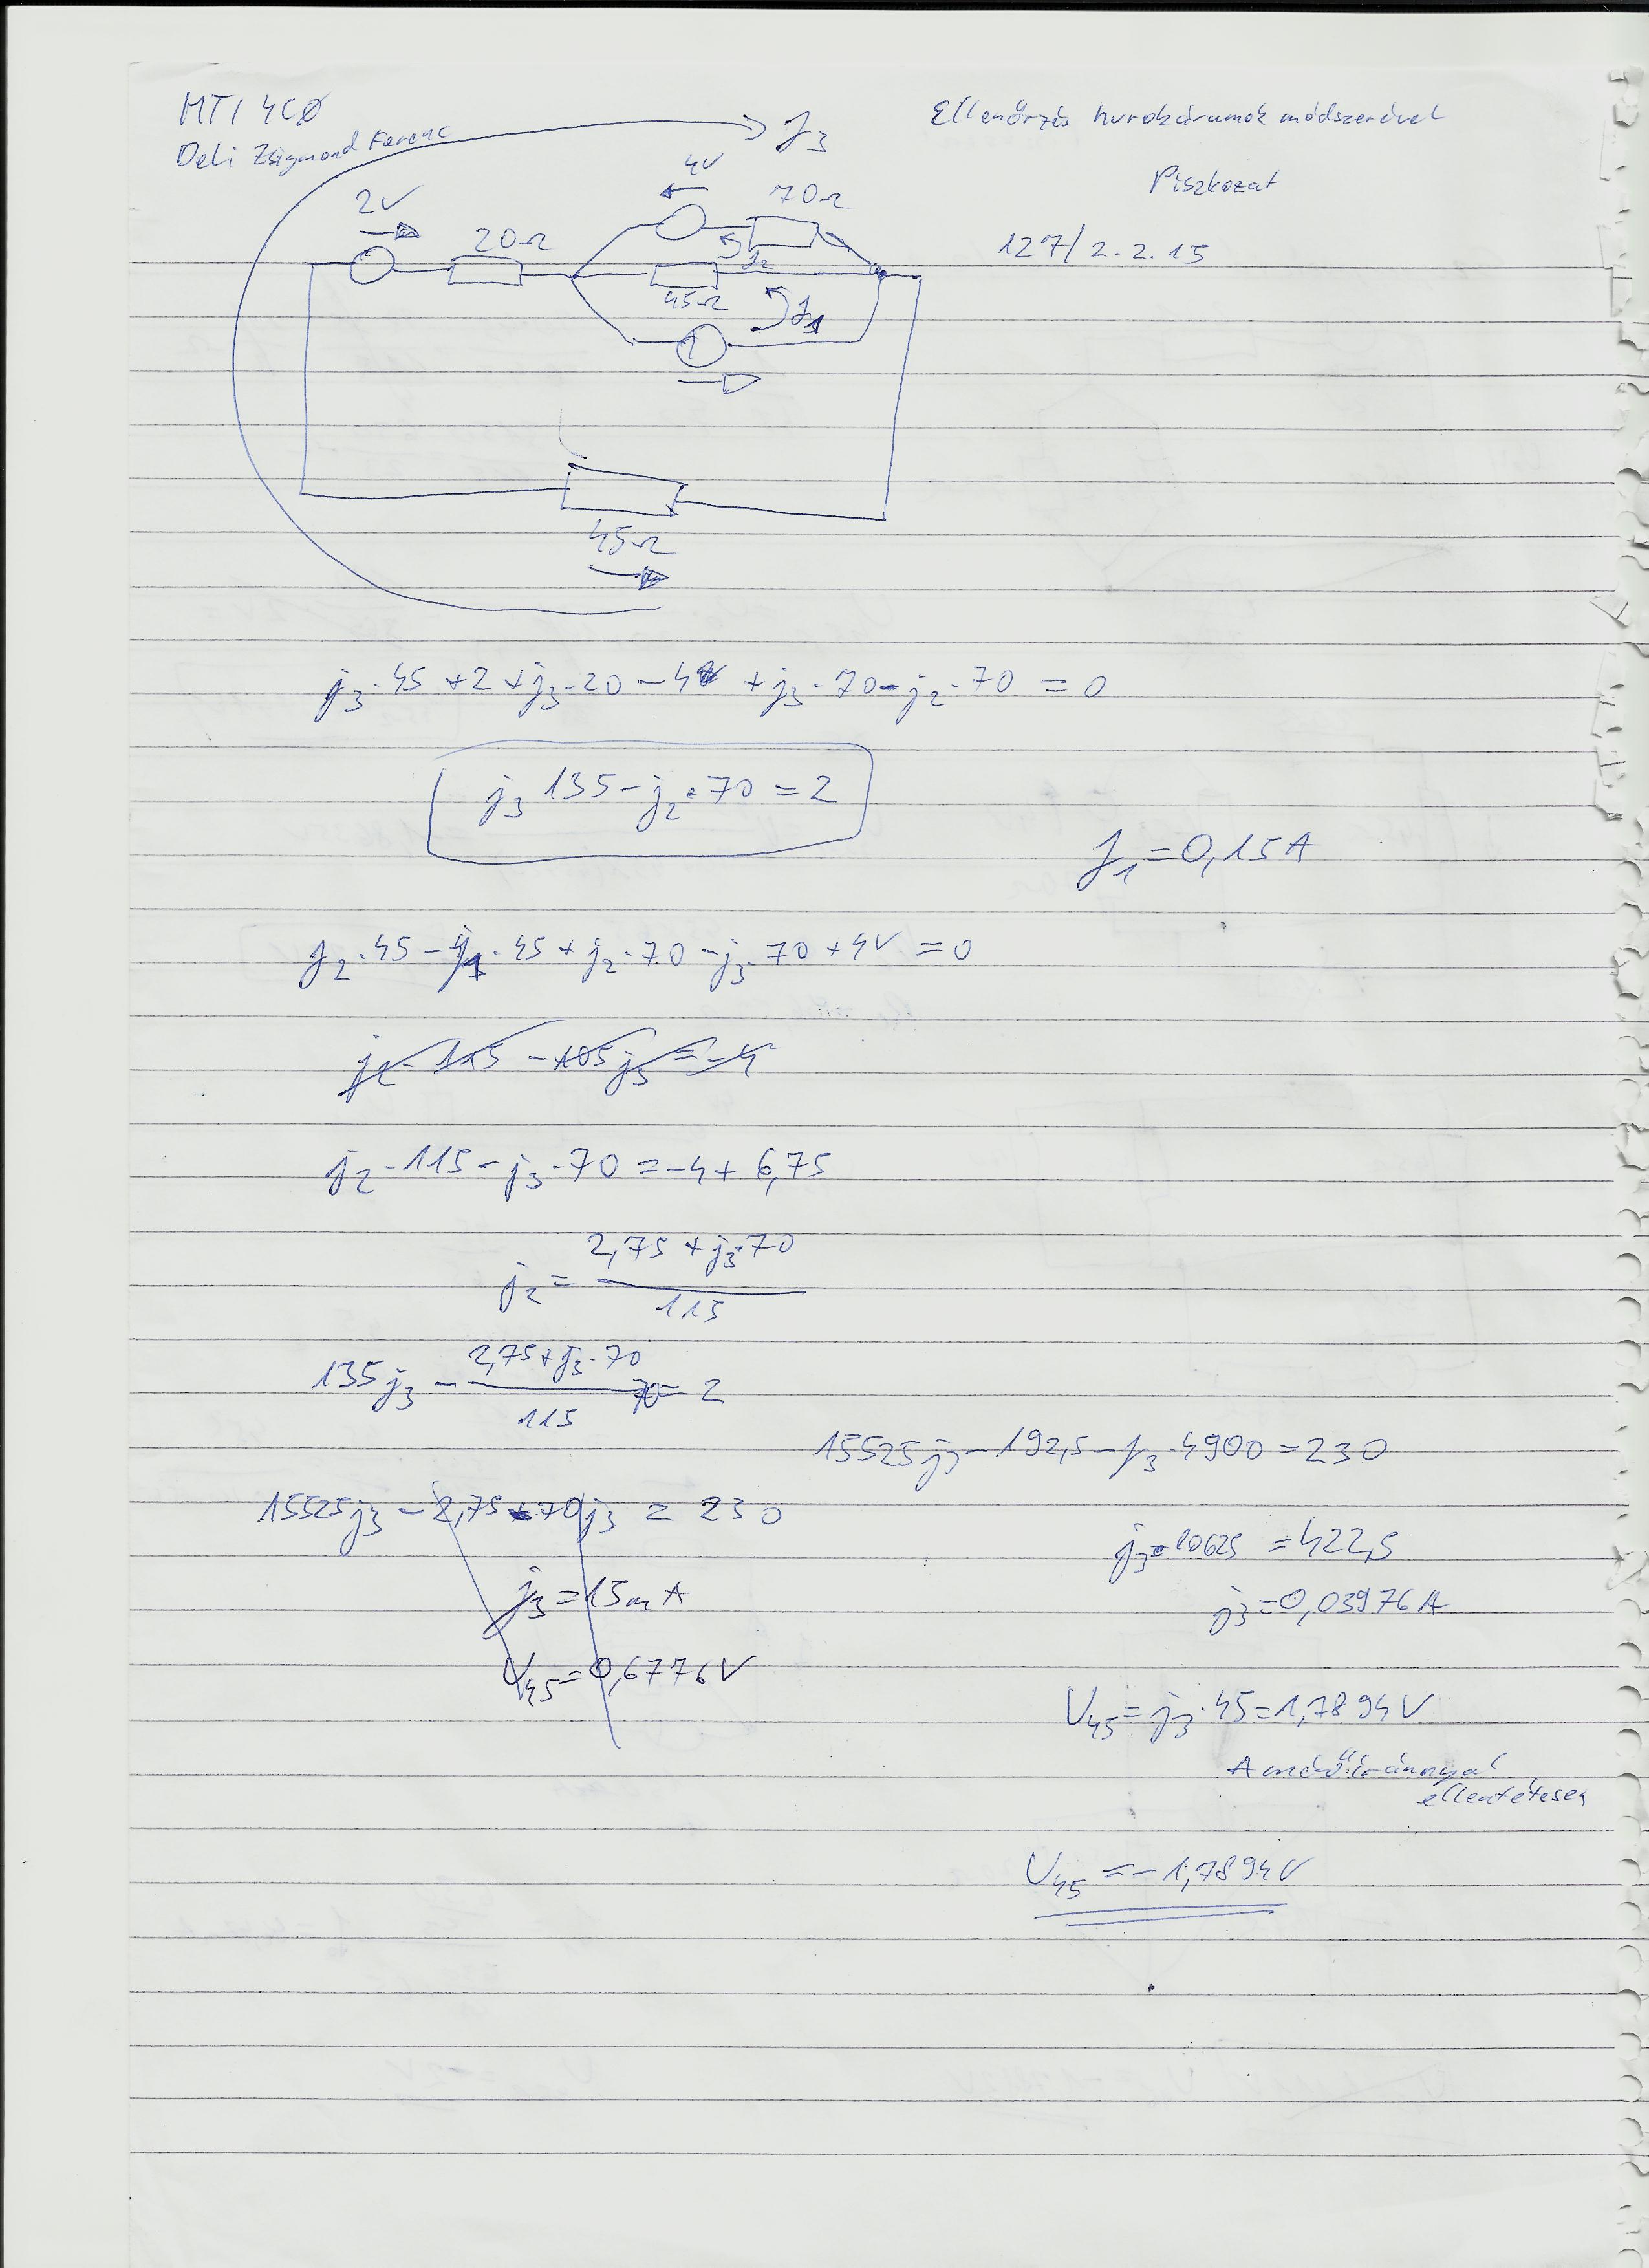 MT14CØ
Deli Zsigmond Ferenc
Ellenőrzés hurokáramok módszerével
Piszkozat
127/2.2.15
J3
2V
20Ω
4V
70Ω
J2
45Ω
J1
45Ω
j3·45+2+j3·20-4+j3·70-j2·70=0
j3 135-j2·70=2
J1=0,15A
J2·45-j1·45+j2·70-j3·70+4V=0
j2·115-105j3=-4
j2·115-j3·70=-4+6,75
j2=(2,75+j3·70)/115
135j3-(2,75+j3·70)/115 70=2
15525j3-192,5-J3·4900=230
15525j3-2,75+70j3=230
j3·10625=422,5
j3=15mA
j3=0,03976A
U45=0,6776V
U45=j3·45=1,7894V
A mérőiránnyal
ellentétesen
U45=-1,7894V